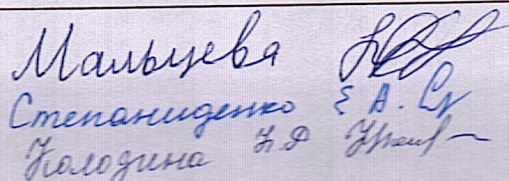 Мальцева
Степаниденко Е А.
Колодина Н.Д